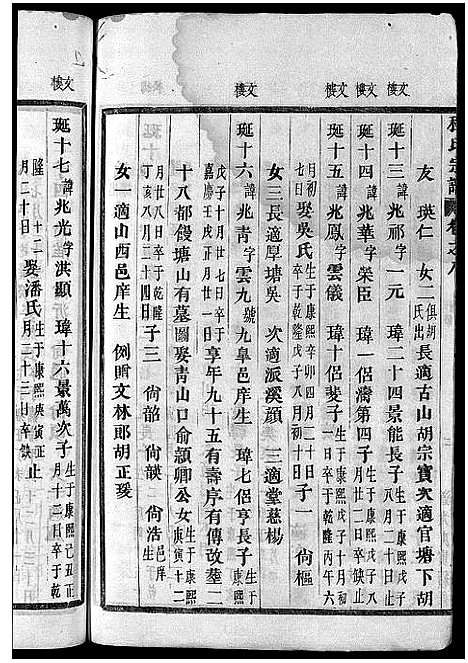 氏宗譜
友 瑛仁 女二俱胡氏出長適古山胡宗寶次適官塘下胡
文樓
珽十三諱兆祁字一元 瑋二十四景能長子生于康熙戊子八月二十日卒缺止
文樓
珽十四諱兆華字榮臣 瑋一侶濤第四子生于康熙月廿二日卒缺止
文樓
珽十五諱兆鳳字雲儀 瑋十一侶燮子生于康熙戊子十月初一日卒于乾隆丙午六月初七日娶吳氏生于康熙辛卯四月二十日卒于乾隆癸子八月初十日子一 尙樞
女三長適厚塘吳 次適派溪顔 三適堂慈楊
文樓
珽十六諱兆青字雲九號九皐邑庠生 瑋七侶亨長子生于康熙戊子十月廿七日卒于嘉慶壬戌正月廿一日享年九十五有壽序有傳改塟二
十八都饅塘山有墓圖娶青山口俞領卿公女生于康熙庚寅十二月廿八日卒于乾隆丁亥八月二十四日子三 尙韶 尙韺 尙浩邑庠生
女一適山西邑庠生 例贈文林郎胡正瑗
文樓
珽十七諱兆光字洪顯 瑋十六景萬次子生于康熙己丑正月十二日卒于乾隆十二月二十日娶潘氏生于康熙庚寅正月二十三日卒缺止